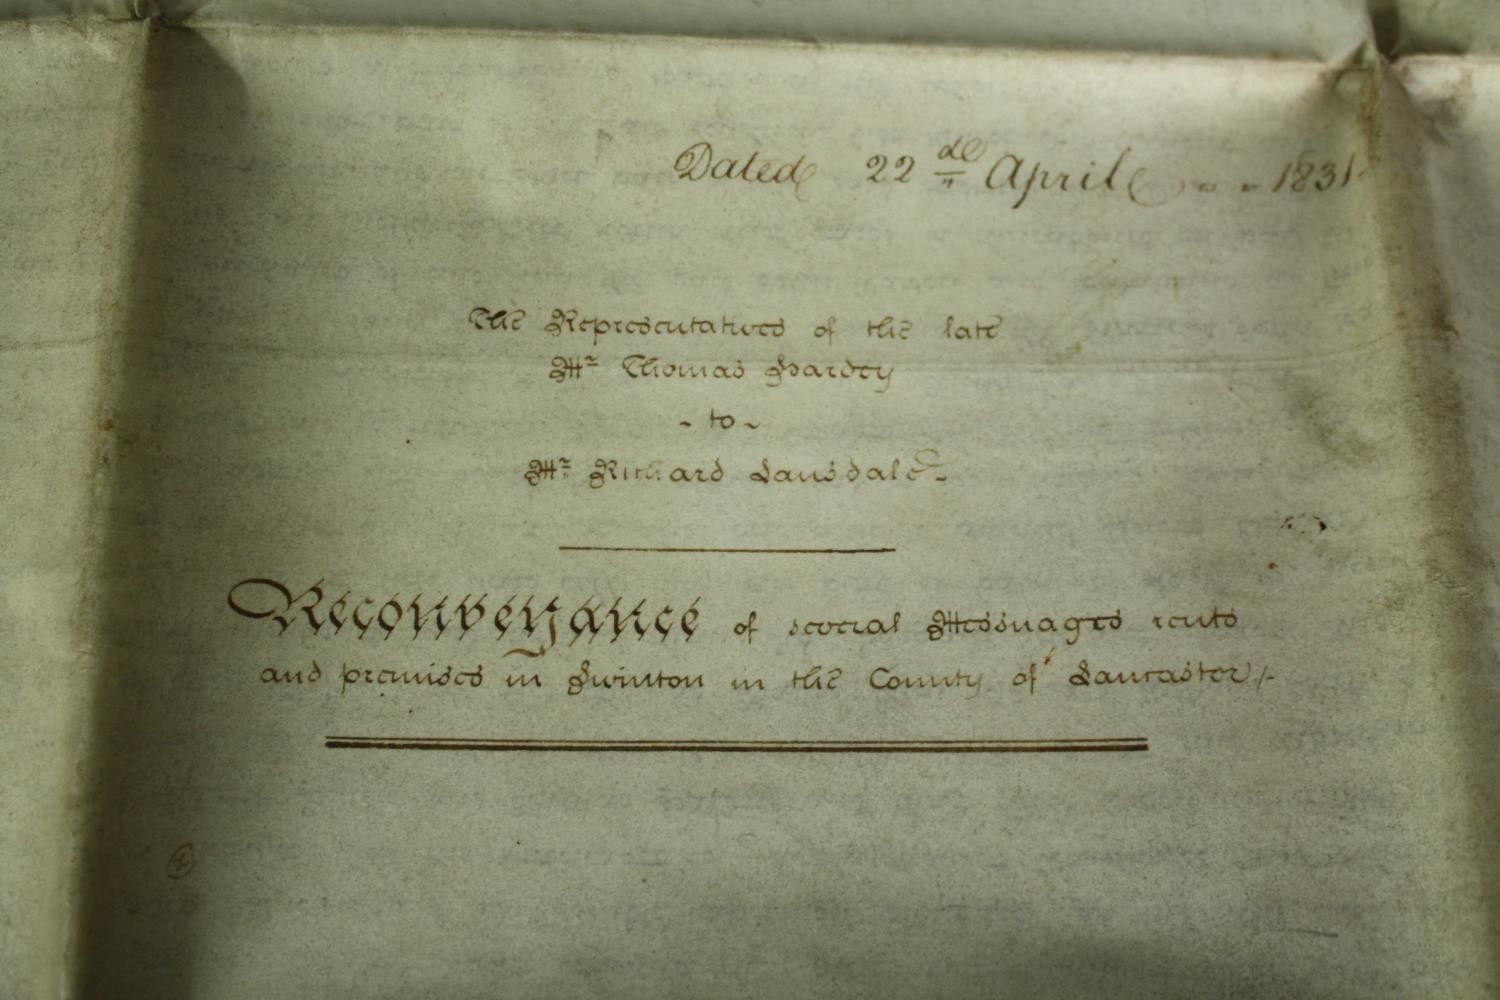 Dated 22d April - - 1831
The Representatives of the late
Mr Thomas Hardey
- to -
Mr Richard Lansdale -
Reconveyance of several Messuages rents
and premises in Swinton in the County of Lancaster /-